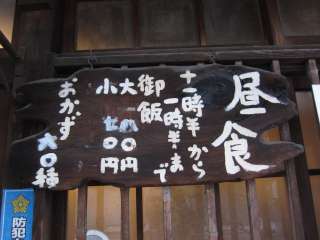 昼食
十一時半から
一時半まで
御飯
大 八〇〇円
小 七〇〇円
おかず 六〇種
防犯